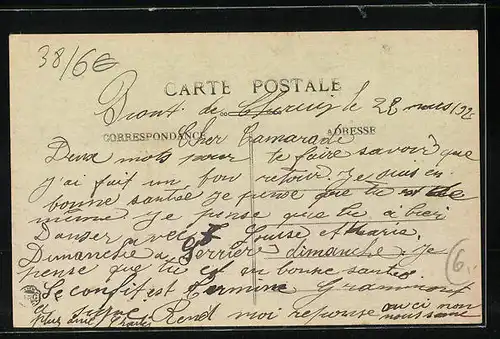 38/6€
CARTE POSTALE
Pront de le 28 mars 192
CORRESPONDANCE ADRESSE
Cher Camarade
Deux mots pour te faire savoir que
j'ai fait un bon retour. Je suis en
bonne santée je pense que tu est de
même Je pense que tu à bien
Danser avec Louise et Maria.
Dimanche a Ferrier dimanche je
pense que tu est en bonne santee
Le conflit est Terminé Grammont
a signé Rend moi reponse ou ci non